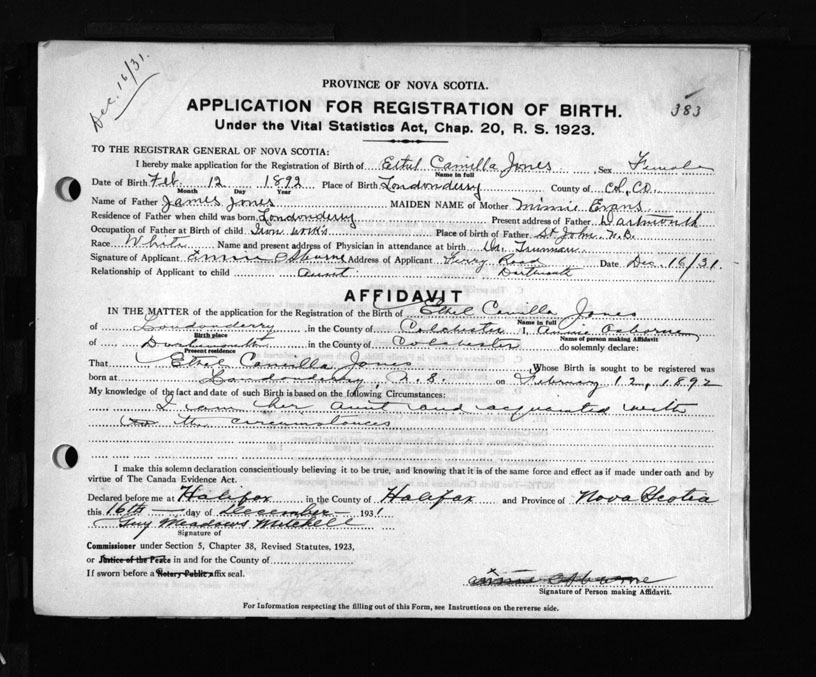 Dec. 16/31.
383
PROVINCE OF NOVA SCOTIA.
APPLICATION FOR REGISTRATION OF BIRTH.
Under the Vital Statistics Act, Chap. 20, R. S. 1923.
TO THE REGISTRAR GENERAL OF NOVA SCOTIA:
I hereby make application for the Registration of Birth of Ethel Camilla Jones Sex Female
Name in full
Date of Birth Feb. 12 1892 Place of Birth Londonderry County of Col. Co.
Month Day Year
Name of Father James Jones MAIDEN NAME of Mother Minnie Evans
Residence of Father when child was born Londonderry Present address of Father Dartmouth
Occupation of Father at Birth of child Iron Works Place of birth of Father St John N.B.
Race White Name and present address of Physician in attendance at birth Dr.
Signature of Applicant Annie Osborne Address of Applicant Ferry Road Date Dec. 16/31.
Relationship of Applicant to child Aunt Dartmouth
AFFIDAVIT
IN THE MATTER of the application for the Registration of the Birth of Ethel Camilla Jones
Name in full
of Londonderry in the County of Colchester I, Annie Osborne
Birth place Name of person making Affidavit
of Dartmouth in the County of Colchester do solemnly declare:
Present residence
That Ethel Camilla Jones Whose Birth is sought to be registered was
born at Londonderry, N.S. on February 12, 1892
My knowledge of the fact and date of such Birth is based on the following Circumstances:
I am her aunt and acquainted with
the circumstances
I make this solemn declaration conscientiously believing it to be true, and knowing that it is of the same force and effect as if made under oath and by
virtue of The Canada Evidence Act.
Declared before me at Halifax in the County of Halifax and Province of Nova Scotia
this 16th day of December 1931
Guy Meadows Mitchell
Signature of
Commissioner under Section 5, Chapter 38, Revised Statutes, 1923,
or Justice of the Peace in and for the County of
If sworn before a Notary Public affix seal.
Annie Osborne
Signature of Person making Affidavit.
For Information respecting the filling out of this Form, see Instructions on the reverse side.